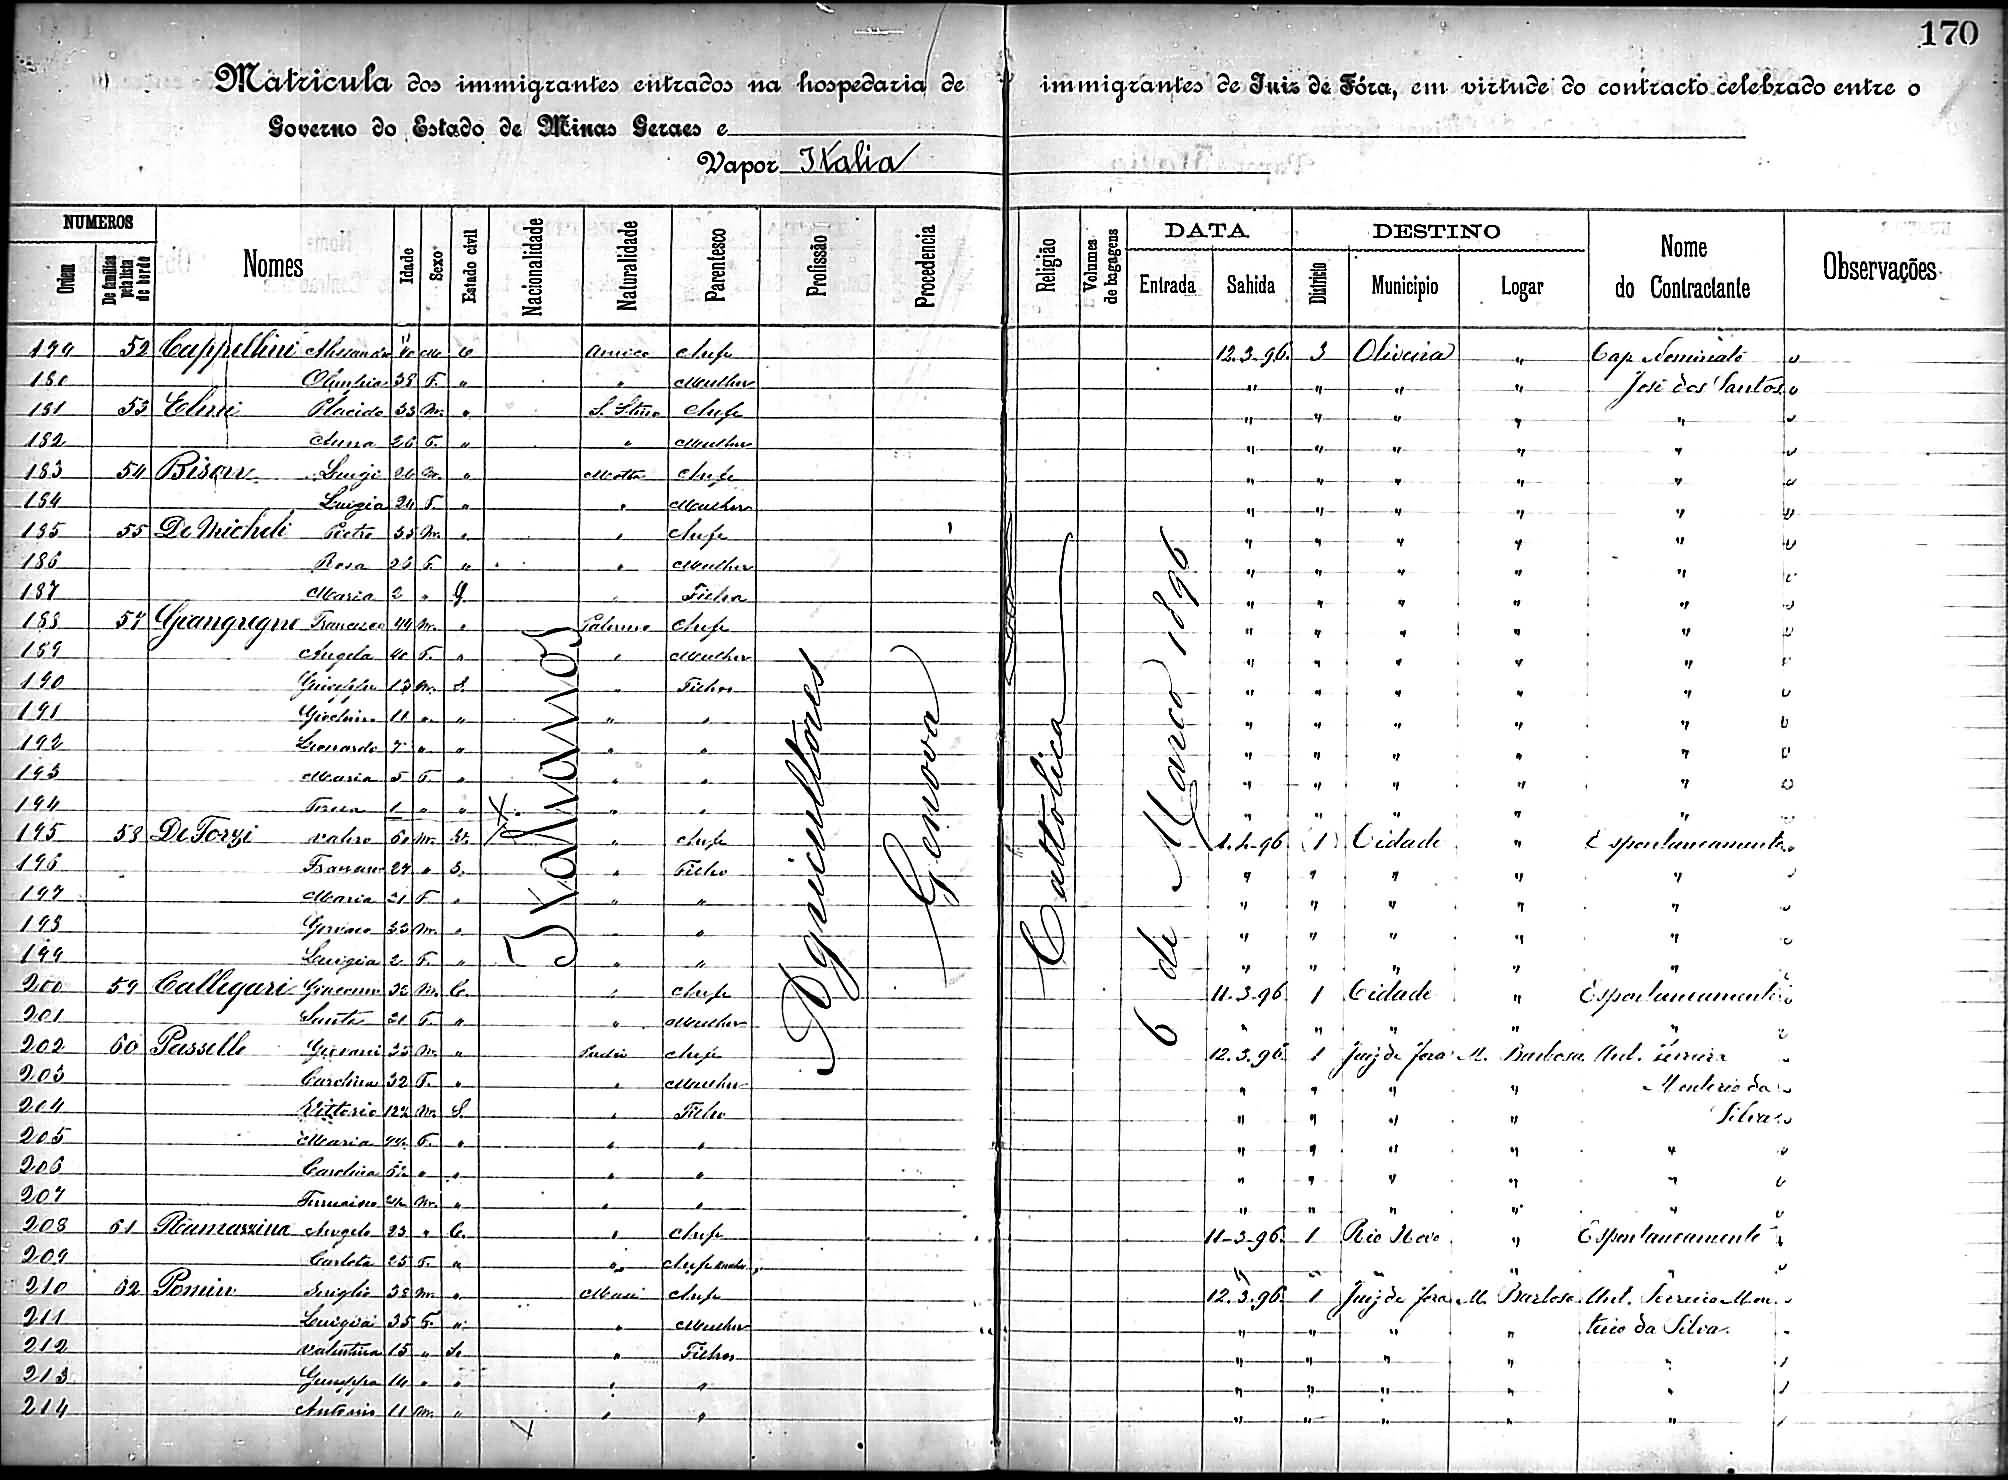 170
Matricula dos immigrantes entrados na hospedaria de immigrantes de Juiz de Fóra, em virtude do contracto celebrado entre o
Governo do Estado de Minas Geraes e
Vapor Italia
NUMEROS Nomes Idade Sexo Estado civil Nacionalidade Naturalidade Parentesco Profissão Procedencia Religião Volumes de bagagens DATA DESTINO Nome do Contractante Observações
Ordem De familias pela lista de bordo Entrada Sahida Districto Municipio Logar
Italianos
Agricultores
Genova
Cattolica
6 de Março 1896
179 52 Cappellini 40 Chefe 12.3.96. 3 Oliveira " Cap.
180 Olimpia 38 F. " " Mulher " " " " José dos Santos
181 53 Placido 33 M. " Chefe " " " " "
182 Anna 26 F. " " Mulher " " " " "
183 54 Bison Luigi 26 M. " Motta Chefe " " " " "
184 Luigia 24 F. " " Mulher " " " " "
185 55 De Micheli Pietro 35 M. " " Chefe " " " " "
186 Rosa 26 F. " " Mulher " " " " "
187 Maria 2 " " Filha " " " " "
188 57 Francesco 44 M. " Palermo Chefe " " " " "
189 Angela 40 F. " " Mulher " " " " "
190 Giuseppe 13 M. S. " Filhos " " " " "
191 11 " " " " " " " " "
192 Leonardo 7 " " " " " " " " "
193 Maria 5 F. " " " " " " " "
194 Teresa 1 " " " " " " " " "
195 58 De Torzi 60 M. " Chefe 1 Cidade " Espontaneamente
196 27 " S. " Filho " " " " "
197 Maria 21 F. " " " " " " " "
198 33 M. " " " " " " " "
199 Luigia 2 F. " " " " " " " "
200 59 Callegari Giacomo 32 M. C. " Chefe 11.3.96 1 Cidade " Espontaneamente
201 Santa 21 F. " " Mulher " " " " "
202 60 Giovani 35 M. " Chefe 12.3.96. 1 Juiz de Fora M. Barbosa Ant. Ferreira
203 Carolina 32 F. " " Mulher " " " " Monteiro da
204 Vittorio 12 M. S. " Filho " " " " Silva
205 Maria F. " " " " " " " "
206 Carolina " " " " " " " " "
207 M. " " " " " " " "
208 61 Ramazzina Angelo 23 " C. " Chefe 11-3-96. 1 Rio Novo " Espontaneamente
209 Carlota 25 F. " " " " " " "
210 62 Pomin 38 M. " Masi Chefe 12.3.96. 1 Juiz de Fora M. Barbosa Ant. Ferreira Mon-
211 Luigia 35 F. " " Mulher " " " " teiro da Silva
212 Valentina 15 " S. " Filhos " " " " "
213 Giuseppa 14 " " " " " " " " "
214 Antonio 11 M. " " " " " " " "